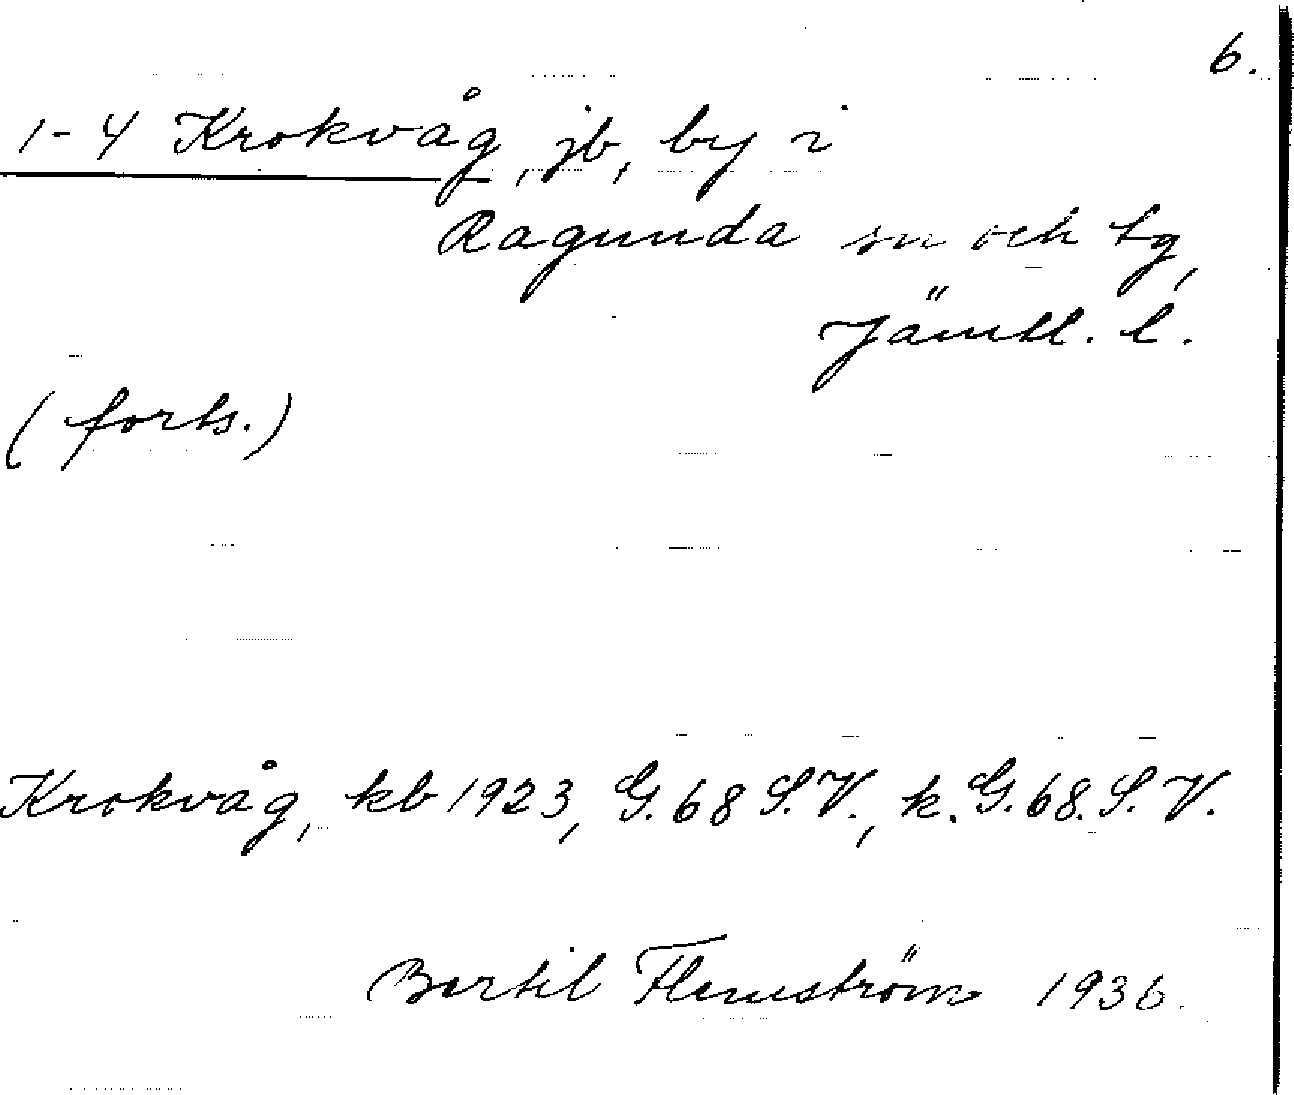 6.
1-4 Krokvåg, jb, by i
Ragunda sn och tg,
Jämtl. l.
(forts.)
Krokvåg, kb 1923, G. 68 S.V., k. G. 68. S. V.
Bertil Flemström 1936.